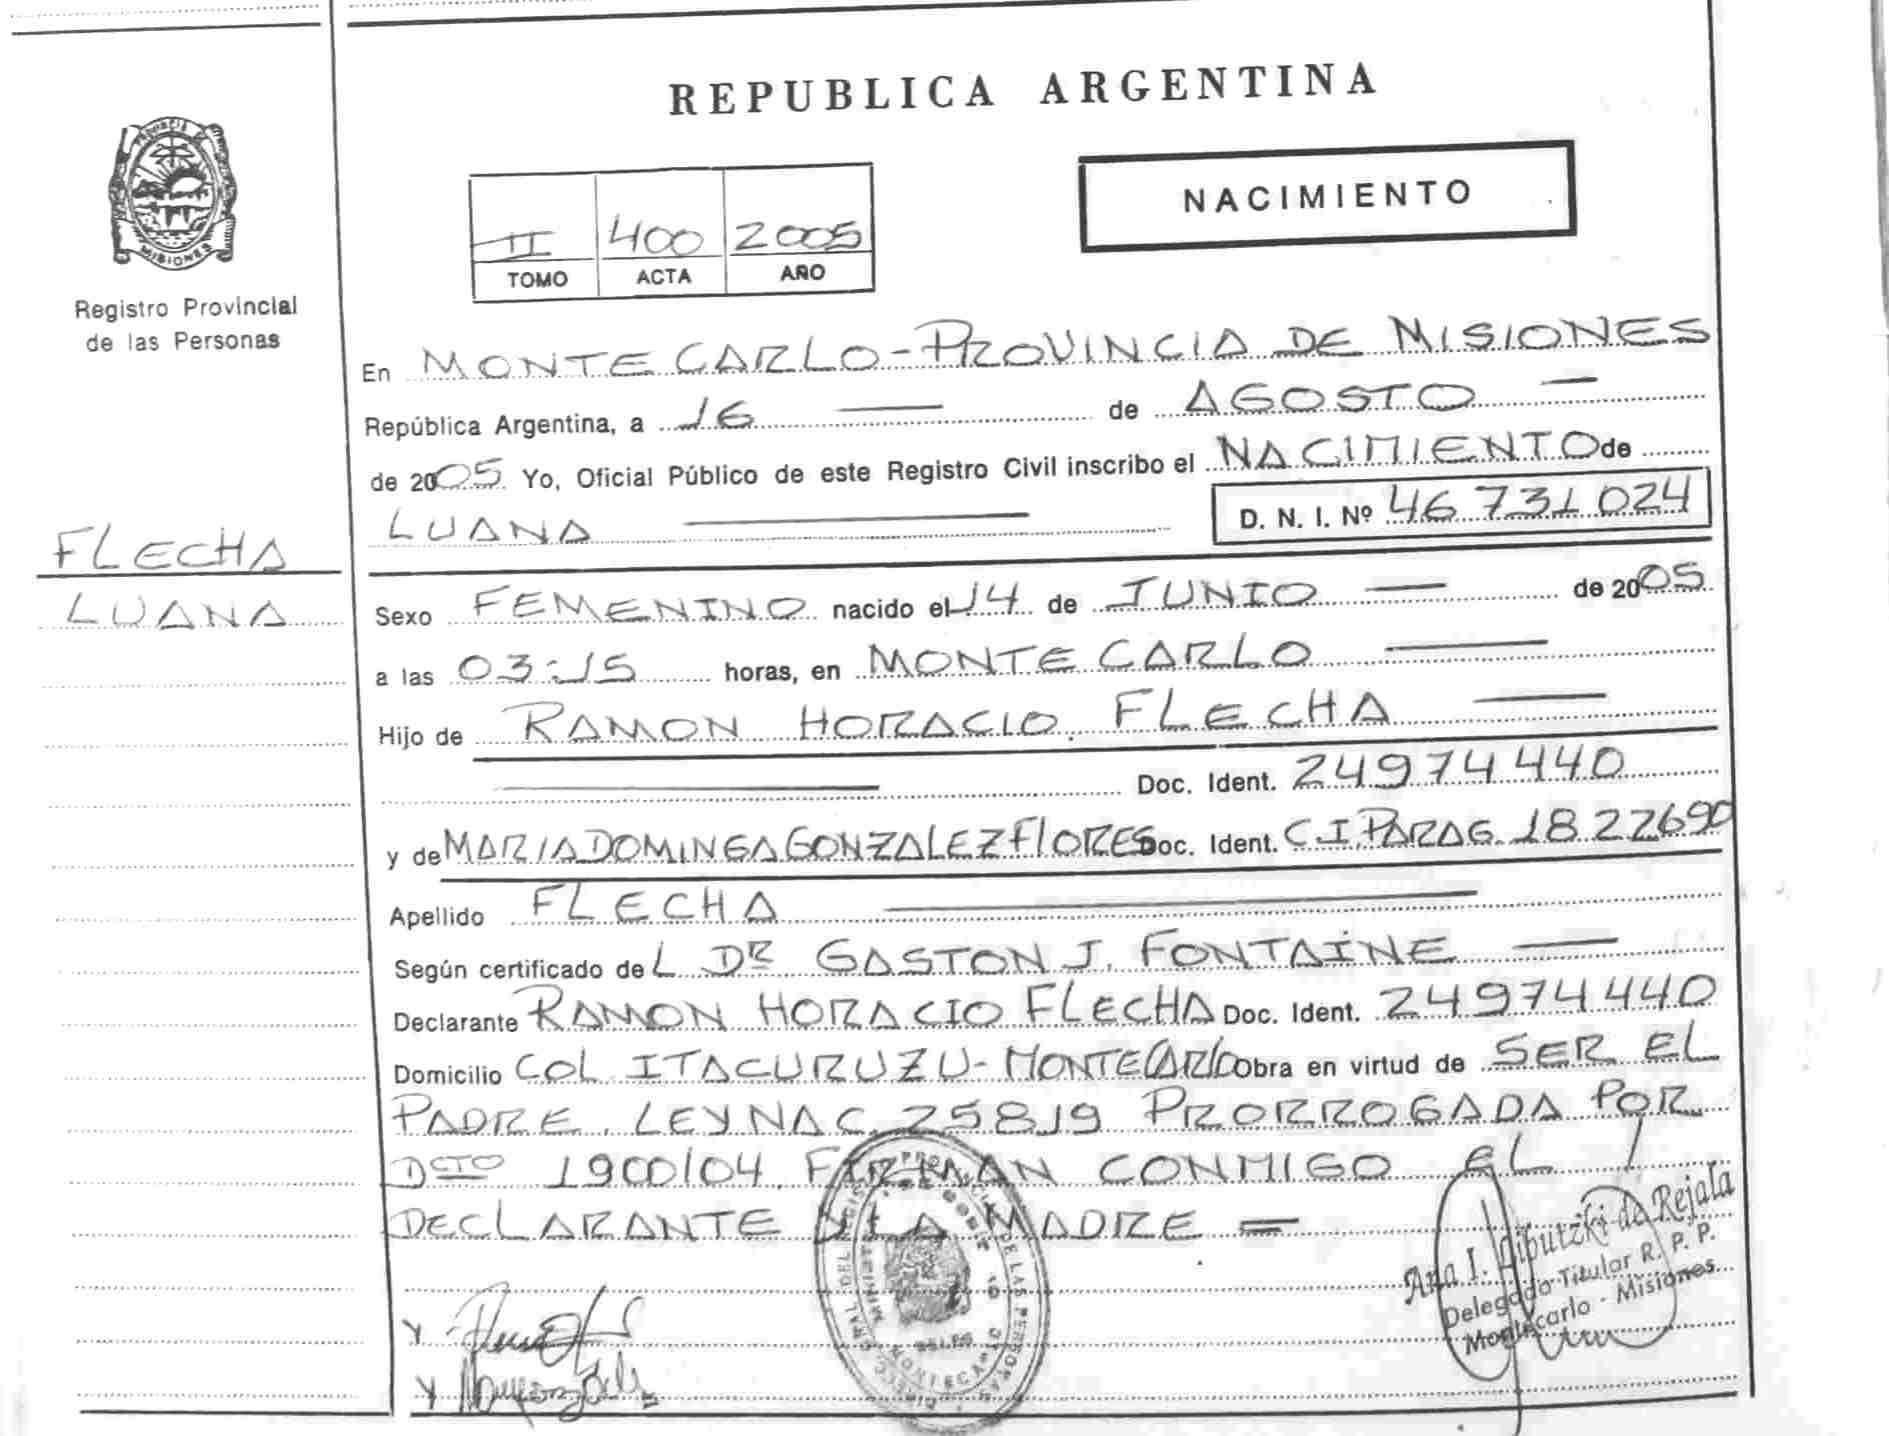 REPUBLICA ARGENTINA
PROVINCIA DE MISIONES
Registro Provincial
de las Personas
NACIMIENTO
II 400 2005
TOMO ACTA AÑO
En MONTECARLO-PROVINCIA DE MISIONES
República Argentina, a 16 de AGOSTO
de 2005. Yo, Oficial Público de este Registro Civil inscribo el NACIMIENTO de
LUANA D. N. I. Nº 46 731 024
FLECHA
LUANA
Sexo FEMENINO nacido el 14 de JUNIO de 2005
a las 03:15 horas, en MONTECARLO
Hijo de RAMON HORACIO FLECHA
Doc. Ident. 24974440
y de MARIA DOMINGA GONZALEZ FLORES Doc. Ident. C.I. PARAG. 1822690
Apellido FLECHA
Según certificado de L DR GASTON J. FONTAINE
Declarante RAMON HORACIO FLECHA Doc. Ident. 24974440
Domicilio COL ITACURUZU-MONTECARLO Obra en virtud de SER EL
PADRE. LEY NAC. 25819 PRORROGADA POR
DCTO 1900/04. FIRMAN CONMIGO EL
DECLARANTE Y LA MADRE =
Ana I. de Rejala
Delegada Titular R. P. P.
Montecarlo - Misiones